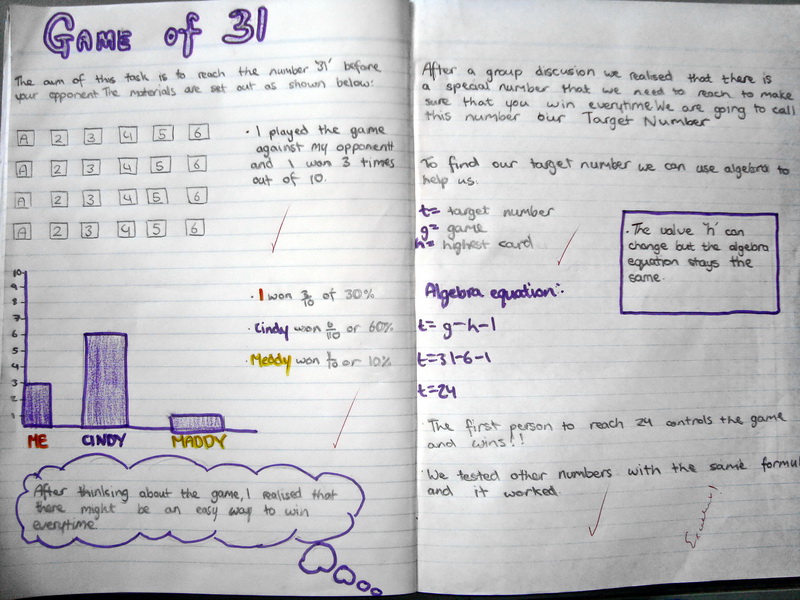 GAME of 31
The aim of this task is to reach the number '31' before
your opponent. The materials are set out as shown below:
A 2 3 4 5 6
A 2 3 4 5 6
A 2 3 4 5 6
A 2 3 4 5 6
• I played the game
against my opponent
and I won 3 times
out of 10.
10
9
8
7
6
5
4
3
2
1
ME CINDY MADDY
• I won 3/10 of 30%
• Cindy won 6/10 or 60%
• Meddy won 1/10 or 10%
After thinking about the game, I realised that
there might be an easy way to win
everytime.
After a group discusion we realised that there is
a special number that we need to reach to make
sure that you win everytime. We are going to call
this number our Target Number
To find our target number we can use algebra to
help us.
t= target number
g= game
h= highest card
• The value 'h' can
change but the algebra
equation stays the
same.
Algebra equation:
t= g-h-1
t=31-6-1
t=24
The first person to reach 24 controls the game
and wins!!
We tested other numbers with the same formul
and it worked.
Excellent!